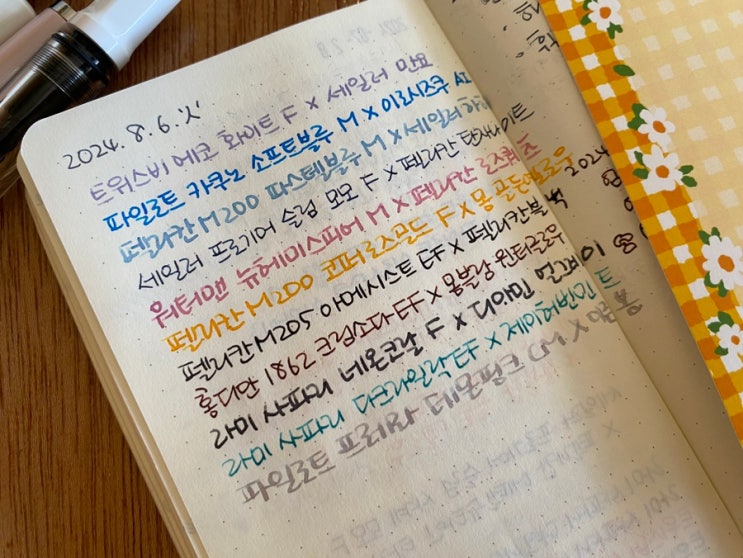 2024. 8. 6. 火
트위스비 에코 화이트 F X 세일러 만요
파일로트 카쿠노 소프트블루 M X 이로시즈쿠
펠리칸 M200 파스텔블루 M X 세일러
세일러 프로기어 슬림 모모 F X 펠리칸 탄자나이트
워터맨 뉴헤미스피어 M X 펠리칸 로즈쿼츠
펠리칸 M200 코퍼로즈골드 F X 몽 골든옐로우
펠리칸 M205 아메시스트 EF X 펠리칸블랙
홍디안 1862 크림소다 EF X 몽블랑 윈터글로우
라미 사파리 네온코랄 F X 디아민
라미 사파리 다크라일락 EF X 제이허빈
파일로트 프레라 CM X
2024